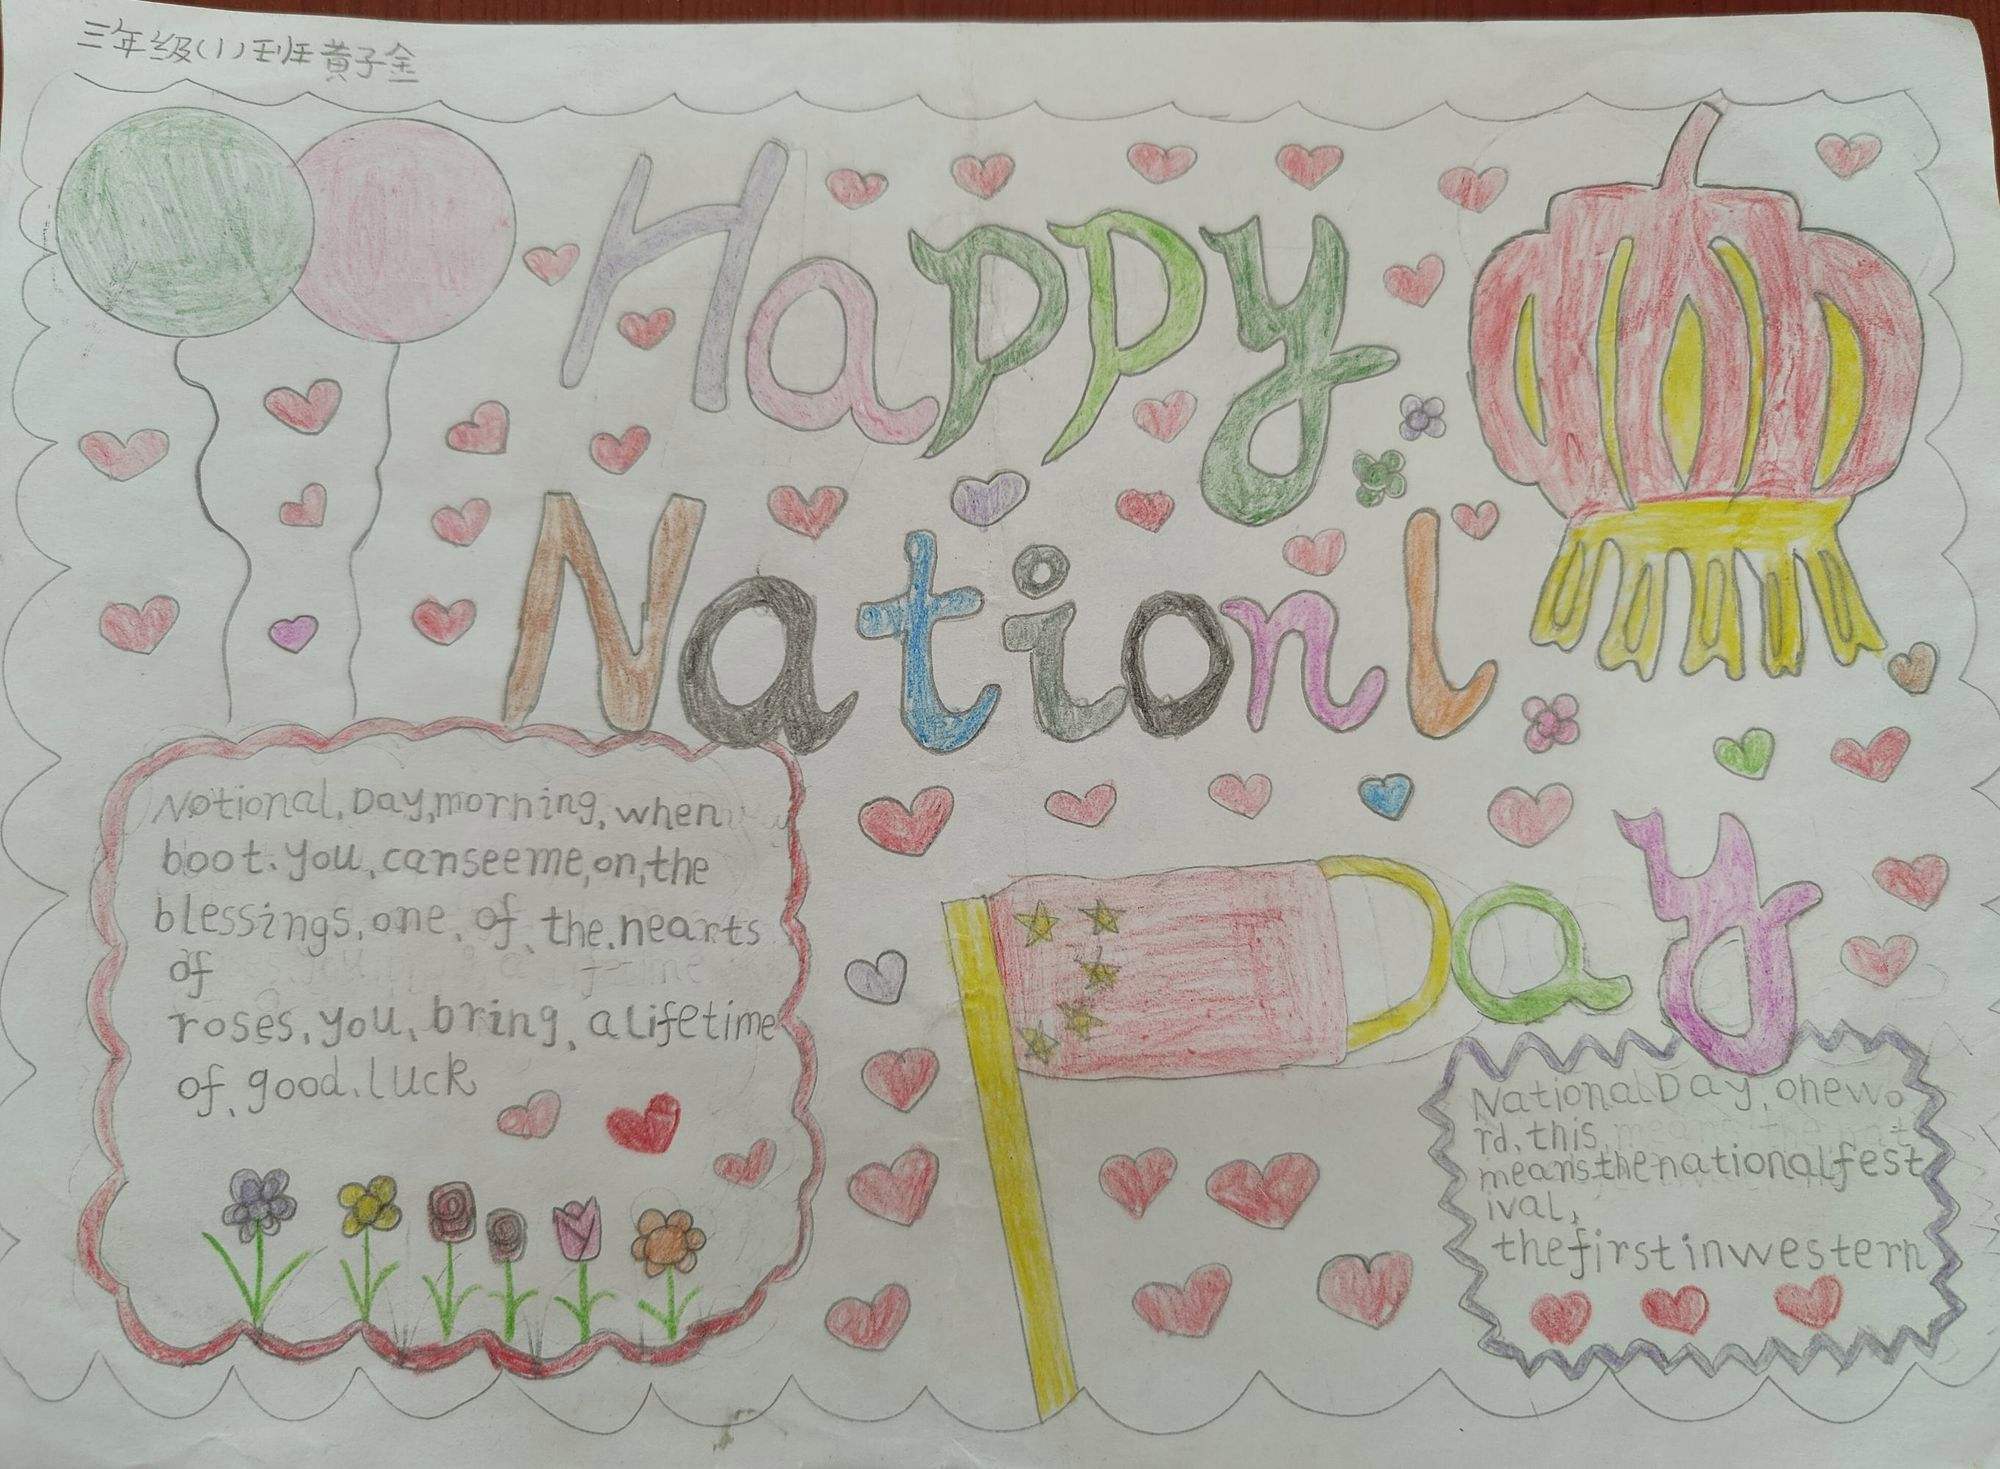 三年级(1)班黄子金
Happy
Nationl
Day
National.Day,morning,when
boot.you.canseeme,on,the
blessings.one.of.the.hearts
of
roses.you.bring.alifetime
of.good.luck
NationalDay,onewo
rd.this
meansthenationalfest
ival,
thefirstinwestern